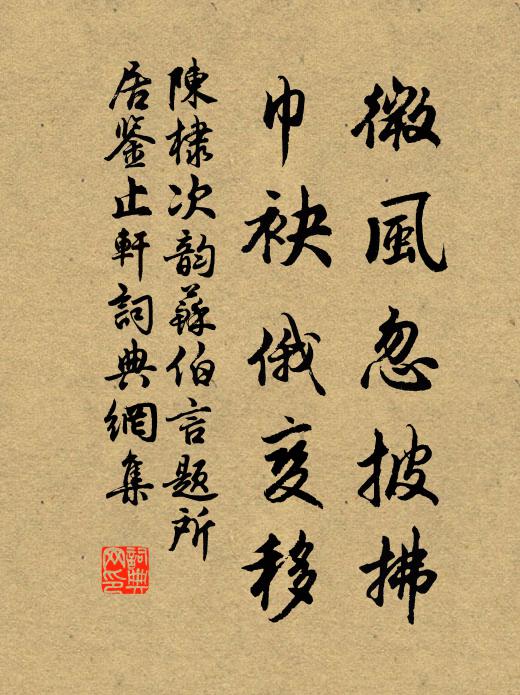 微風忽披拂
巾袂俄变移
陳棣次韵蘇伯言題所
居鉴止軒詞典網集
詞典网印